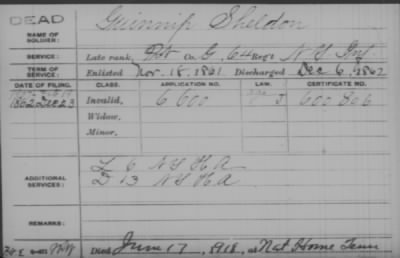 DEAD
Guinnip Sheldon
NAME OF SOLDIER:
SERVICE: Late rank, Pvt Co. G, 64 Reg't N Y Inf.
TERM OF SERVICE: Enlisted Nov. 18, 1861 Discharged Dec 6, 1862
DATE OF FILING. CLASS. APPLICATION NO. LAW. CERTIFICATE NO.
1862 Dec 23 Invalid, 6 600 600 806
Widow,
Minor,
L 6 N Y H A
ADDITIONAL SERVICES: D 13 N Y H A
REMARKS:
Died June 17, 1918, at Nat Home Tenn